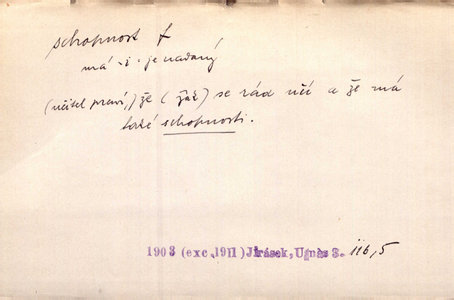 schopnost f
má -i- je nadaný
(učitel praví,) že (žák) se rád učí a že má
také schopnosti.
1903 (exc. 1911) Jirásek, U nás 3. 116,5